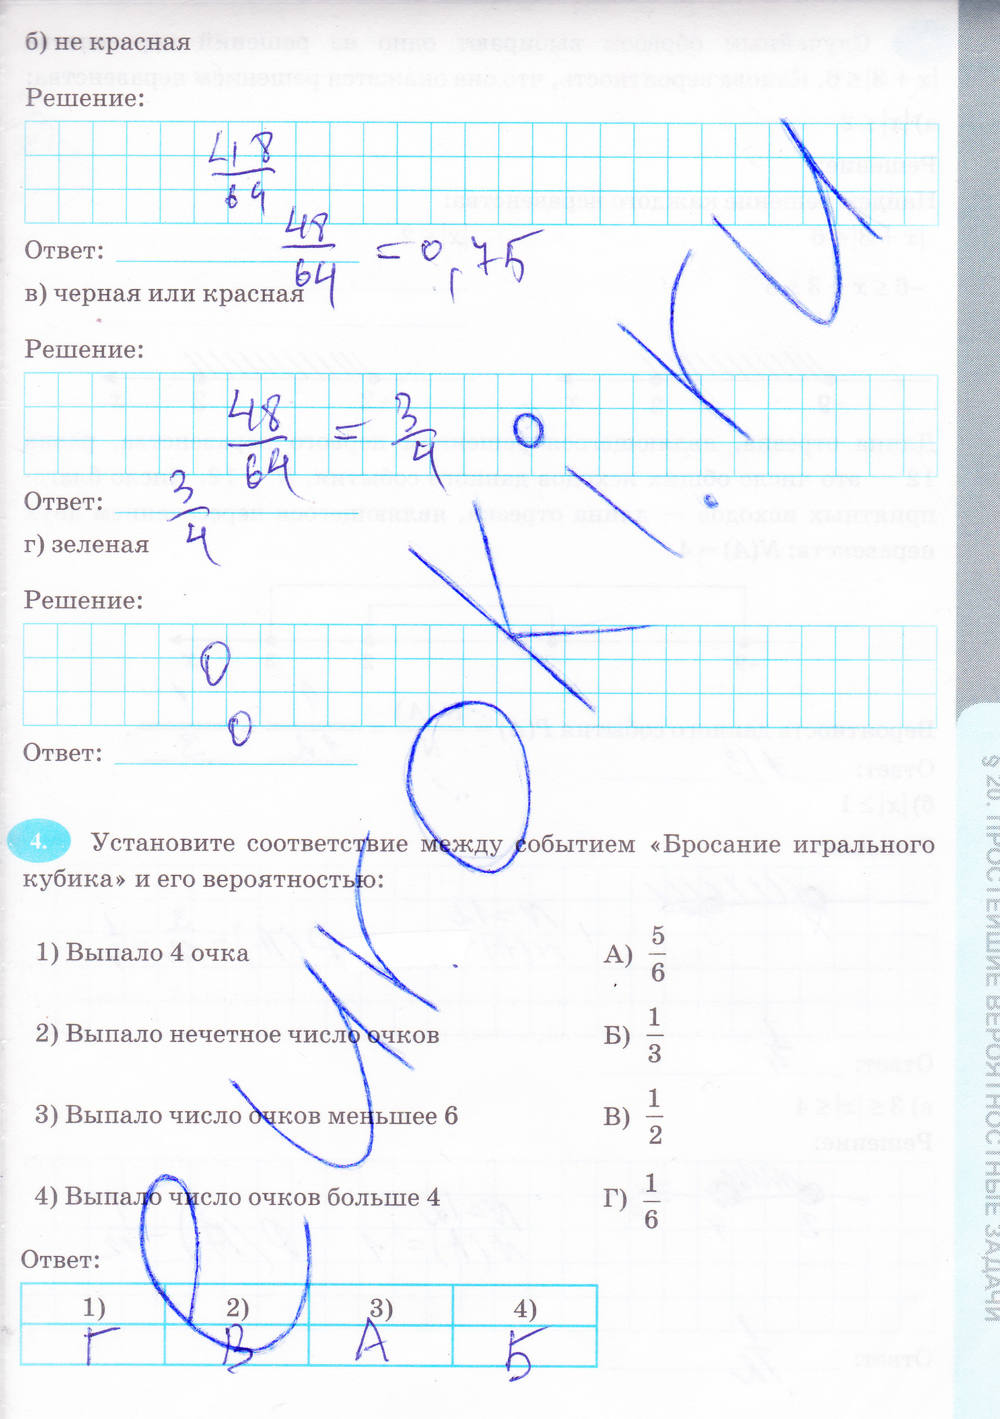 б) не красная
Решение:
48/64
Ответ: 48/64 = 0,75
в) черная или красная
Решение:
48/64 = 3/4
Ответ: 3/4
г) зеленая
Решение:
0
0
Ответ:
4. Установите соответствие между событием «Бросание игрального
кубика» и его вероятностью:
1) Выпало 4 очка А) 5/6
2) Выпало нечетное число очков Б) 1/3
3) Выпало число очков меньшее 6 В) 1/2
4) Выпало число очков больше 4 Г) 1/6
Ответ:
1) 2) 3) 4)
Г В А Б
§ 20. ПРОСТЕЙШИЕ ВЕРОЯТНОСТНЫЕ ЗАДАЧИ